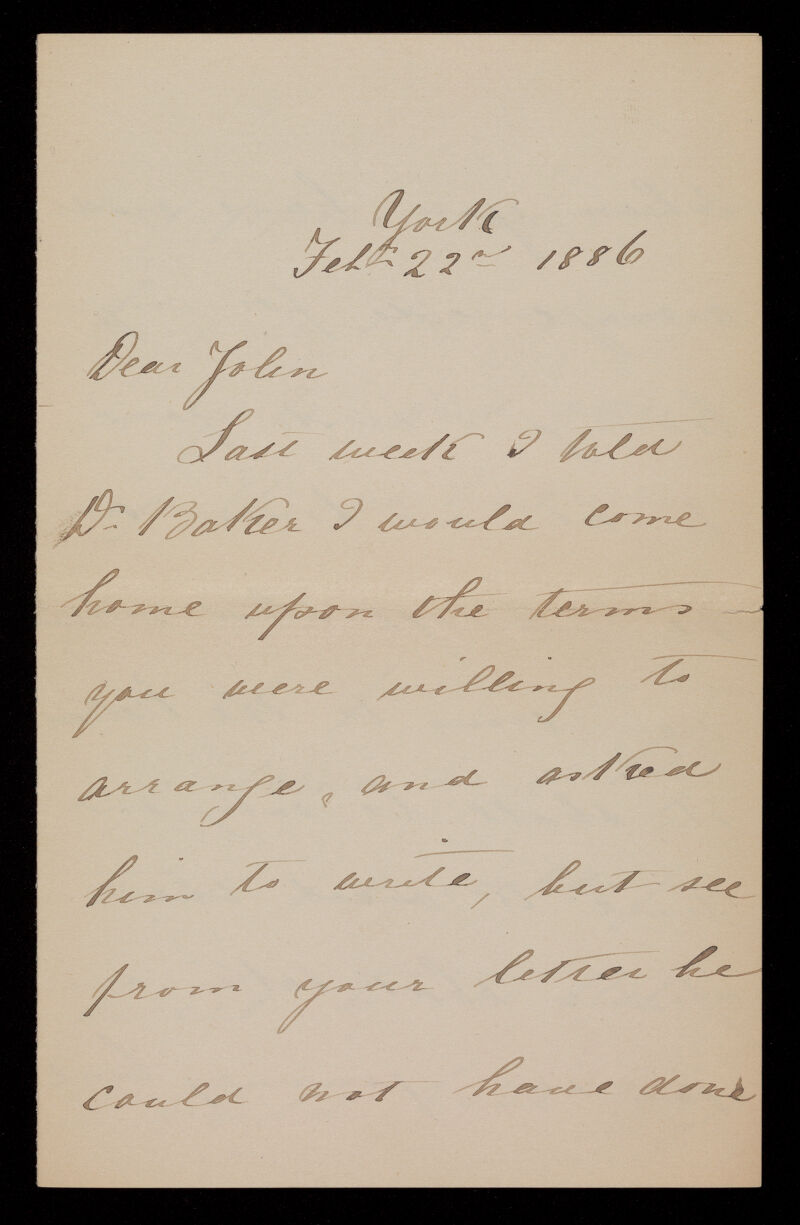 York
Feby 22nd 1886
Dear John
Last week I told
Dr Baker I would come
home upon the terms
you were willing to
arrange, and asked
him to write, but see
from your letter he
could not have done